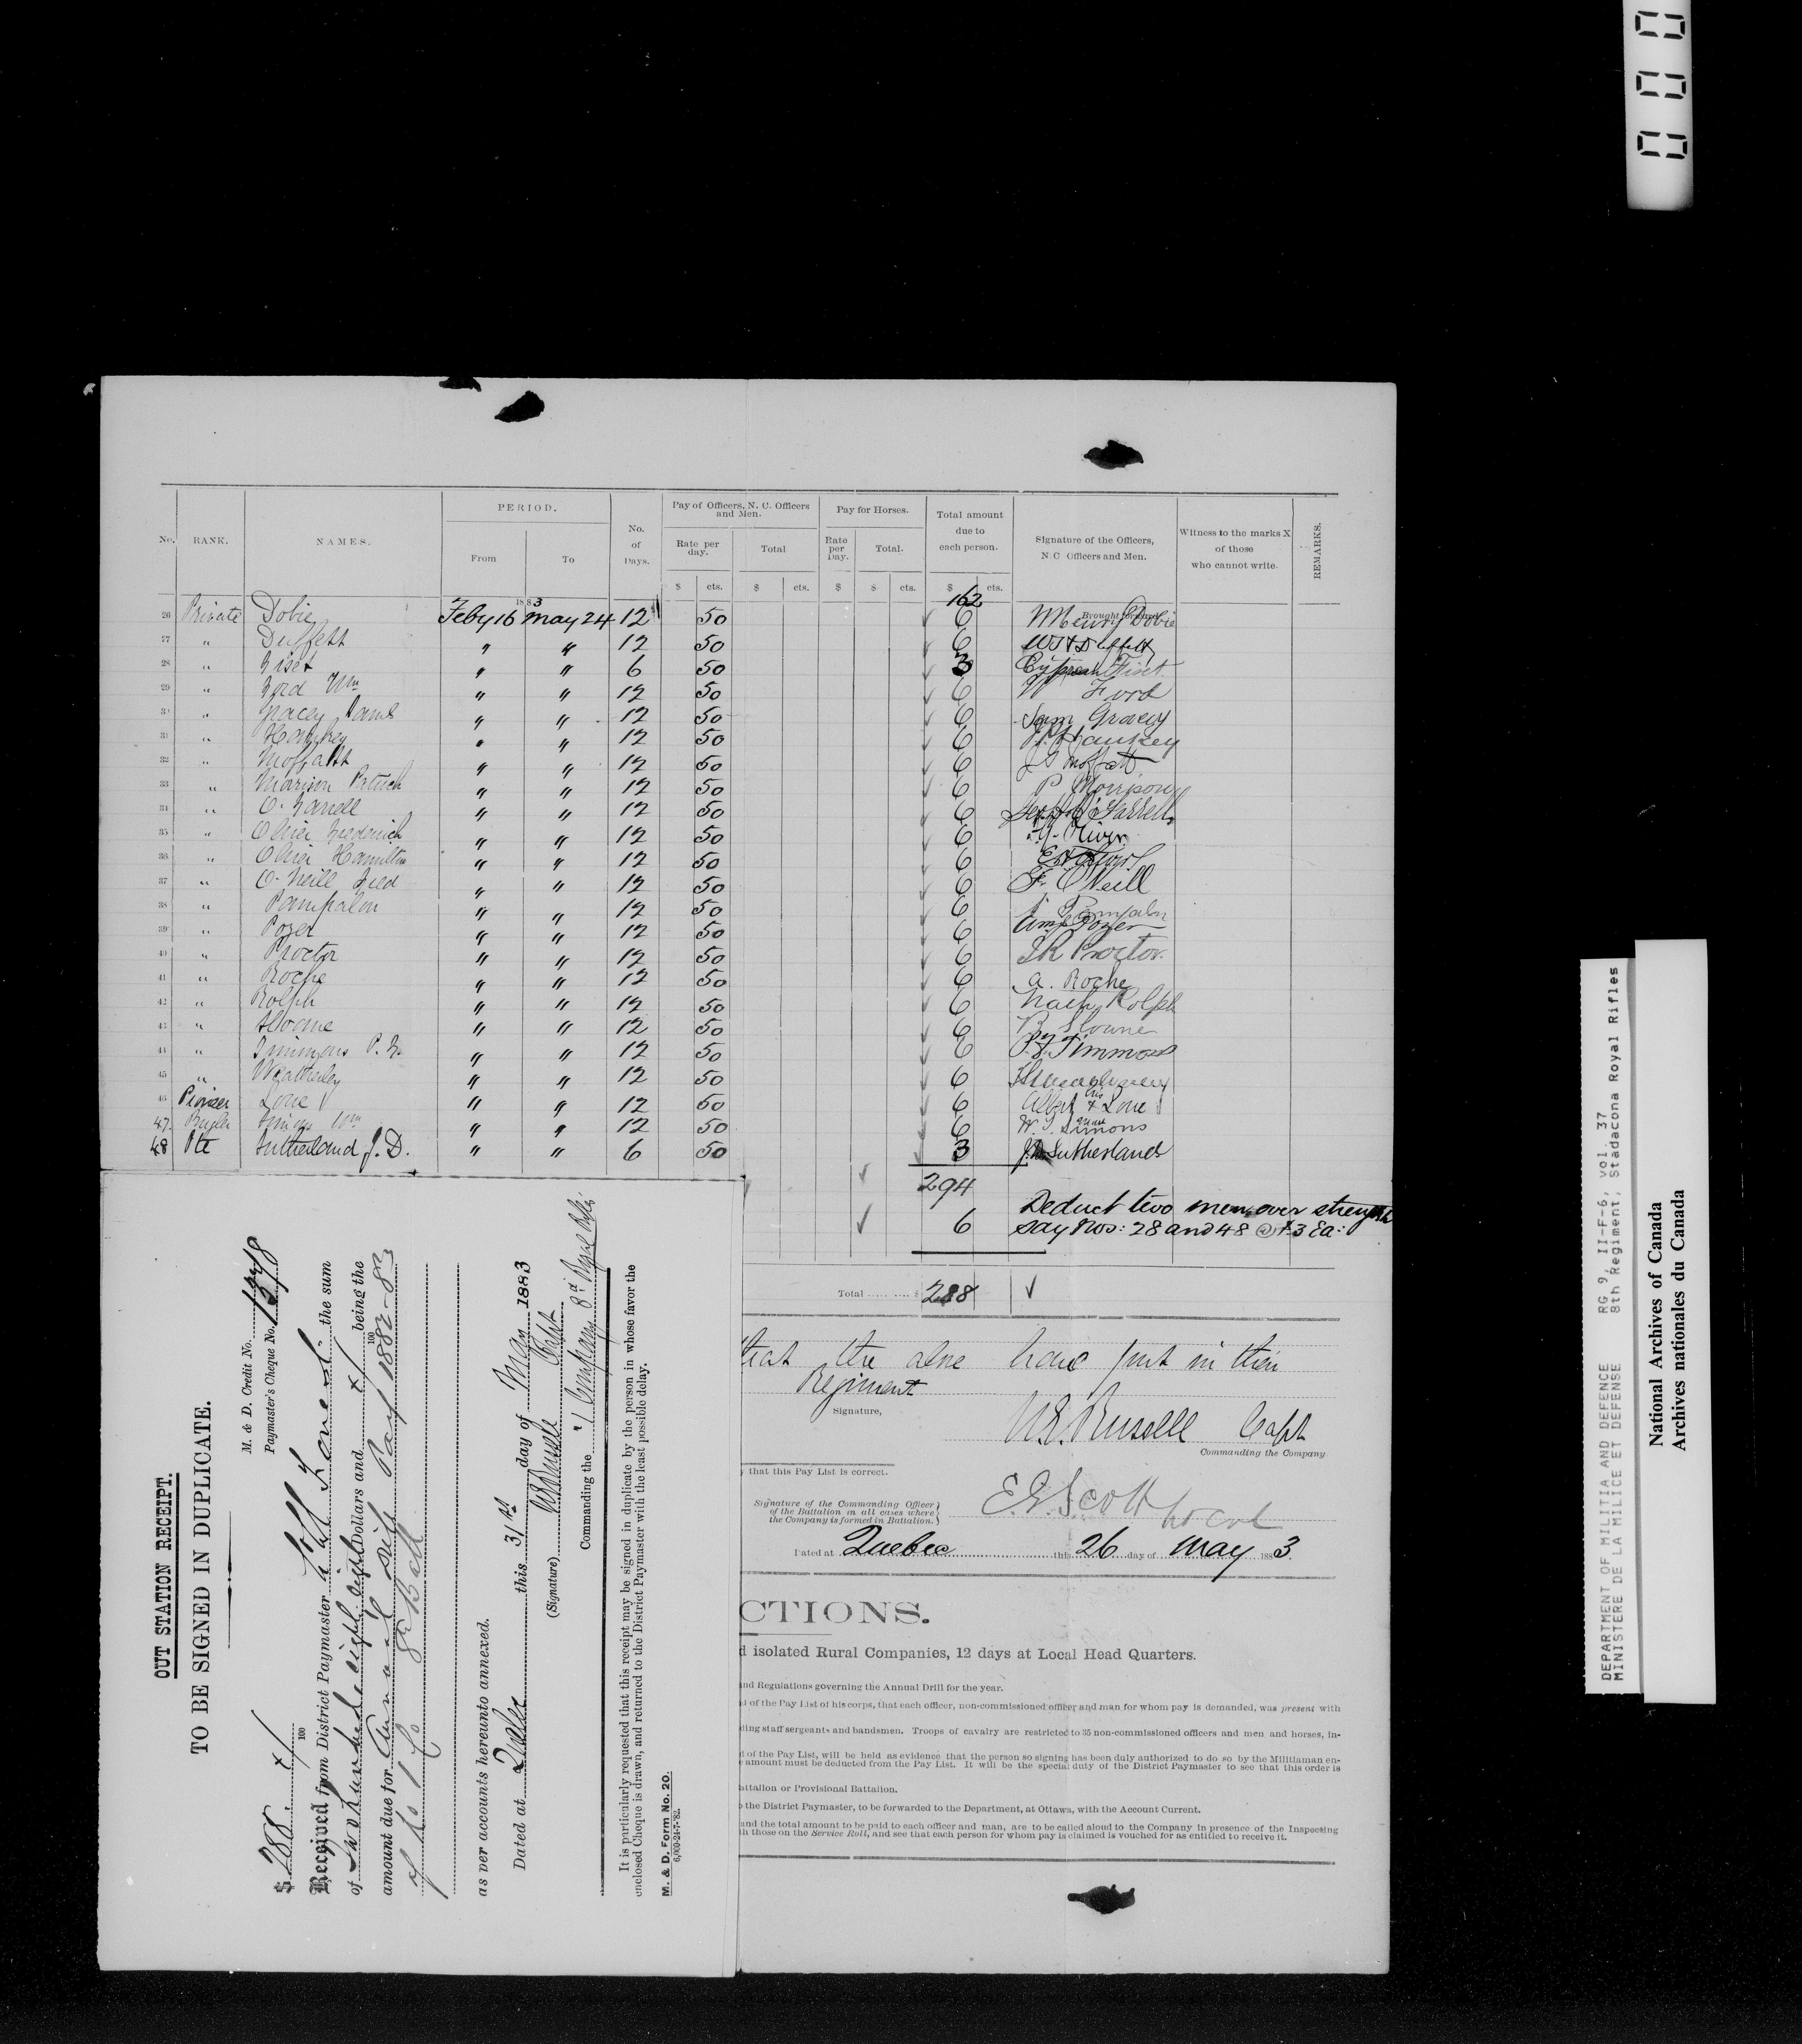 No. RANK. NAMES. PERIOD. From To No. of Days. Pay of Officers, N. C. Officers and Men. Rate per day. Total Pay for Horses. Rate per Day. Total. Total amount due to each person. Signature of the Officers, N C Officers and Men. Witness to the marks X of those who cannot write. REMARKS.
$ cts. $ cts. $ $ cts. $ cts.
1883 162 Brought forward
26 Private Dobie Feby 16 May 24 12 50 6 Henry Dobie
27 " Duffett " " 12 50 6
28 " Fiset " " 6 50 3 Cyprean Fiset
29 " Ford Wm " " 12 50 6 W Ford
30 " Gracey Saml " " 12 50 6 Sam Gracey
31 " Hanfrey " " 12 50 6
32 " Moffatt " " 12 50 6 J G Moffatt
33 " Morison Patrick " " 12 50 6 P Morrison
34 " O. Farrell " " 12 50 6 O'Farrell
35 " Oliver Frederick " " 12 50 6 Oliver
36 " Oliver Hamilton " " 12 50 6
37 " O. Neill Fred " " 12 50 6 F. O'Neill
38 " Pampalon " " 12 50 6 J Pampalon
39 " Pozer " " 12 50 6 Pozer
40 " Proctor " " 12 50 6 Proctor.
41 " Roche " " 12 50 6 A. Roche
42 " Rolph " " 12 50 6 Rolph
43 " Sloane " " 12 50 6
44 " Timmons P. F. " " 12 50 6 P. F. Timmons
45 " Weatherley " " 12 50 6
46 Pioneer Lone " " 12 50 6 Albert his + Lone
47. Bugler Simons Wm " " 12 50 6 W. T. Simons
48 Pte Sutherland J. D. " " 6 50 3 J.D. Sutherland
294
6 Deduct two men over strength
say Nos: 28 and 48 @ $3 Ea:
Total $ 288
that the above have put in their
Regiment
Signature,
Russell Capt
Commanding the Company
y that this Pay List is correct.
Signature of the Commanding Officer
of the Battalion in all cases where
the Company is formed in Battalion.
Scott Lt Col
Dated at Quebec this 26 day of May 1883.
CTIONS.
d isolated Rural Companies, 12 days at Local Head Quarters.
and Regulations governing the Annual Drill for the year.
d of the Pay List of his corps, that each officer, non-commissioned officer and man for whom pay is demanded, was present with
ding staff sergeants and bandsmen. Troops of cavalry are restricted to 35 non-commissioned officers and men and horses, in-
d of the Pay List, will be held as evidence that the person so signing has been duly authorized to do so by the Militiaman en-
e amount must be deducted from the Pay List. It will be the special duty of the District Paymaster to see that this order is
attalion or Provisional Battalion.
o the District Paymaster, to be forwarded to the Department, at Ottawa, with the Account Current.
and the total amount to be paid to each officer and man, are to be called aloud to the Company in presence of the Inspecting
th those on the Service Roll, and see that each person for whom pay is claimed is vouched for as entitled to receive it.
OUT STATION RECEIPT.
TO BE SIGNED IN DUPLICATE.
M. & D. Credit No.
Paymaster's Cheque No. 1378
$ 288. x/100
Received from District Paymaster Lt Col Forrest the sum
of Two hundred eighty eight Dollars and x/100 being the
amount due for Annual Drill Pay 1882-83
of No 1 Co 8th Batt
as per accounts hereunto annexed.
Dated at Quebec this 31st day of May 1883
(Signature) Russell Capt
Commanding the "1 Company 8th Royal Rifles
It is particularly requested that this receipt may be signed in duplicate by the person in whose favor the
enclosed Cheque is drawn, and returned to the District Paymaster with the least possible delay.
M. & D. Form No. 20.
6,000-24-7-'82.
000
DEPARTMENT OF MILITIA AND DEFENCE RG 9, II-F-6, vol. 37
MINISTERE DE LA MILICE ET DEFENSE 8th Regiment, Stadacona Royal Rifles
National Archives of Canada
Archives nationales du Canada